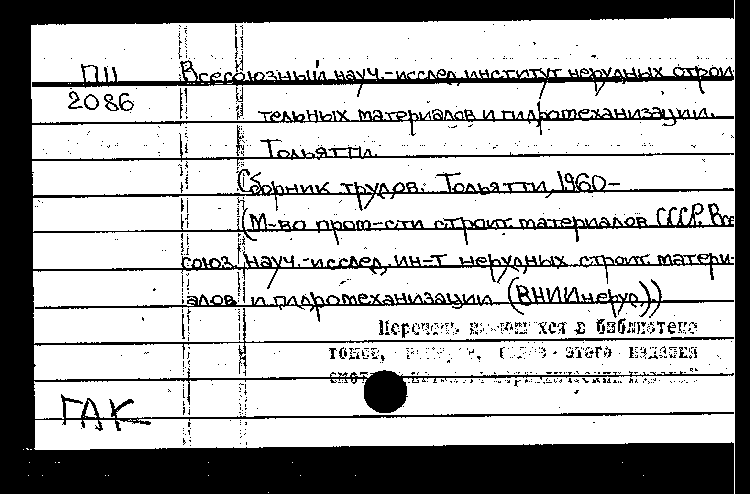 П11
2086
Всесоюзный науч.-исслед. институт нерудных строи
тельных материалов и гидромеханизации.
Тольятти.
Сборник трудов. Тольятти, 1960-
(М-во пром-сти строит. материалов СССР. Все
союз. науч.-исслед. ин-т нерудных строит. матери-
алов и гидромеханизации (ВНИИнеруд))
Перечень имеющихся в библиотеке
томов, этого издания
ГАК